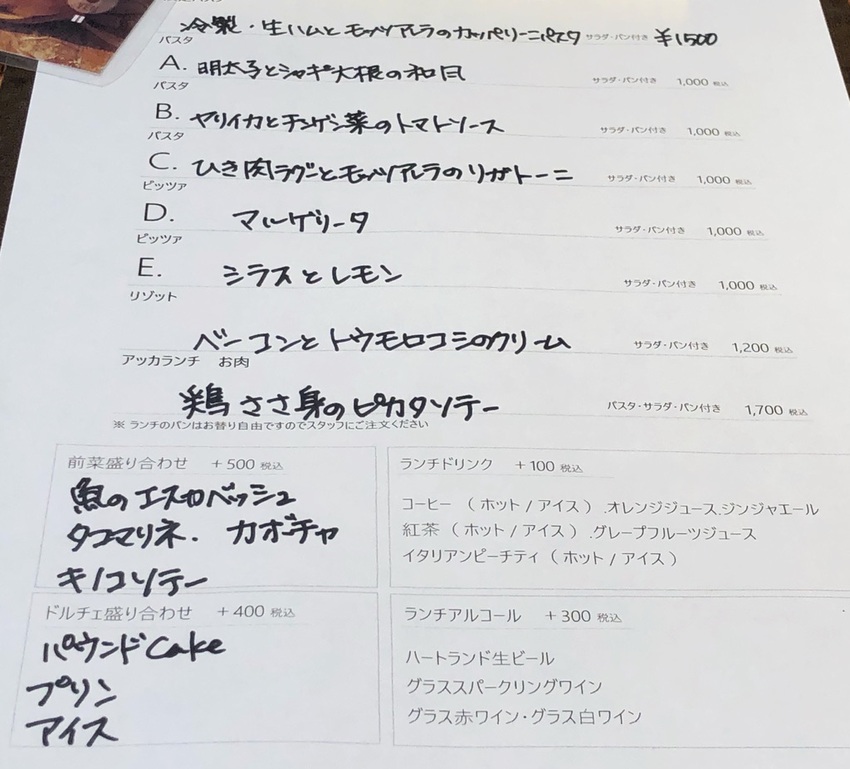 冷製・生ハムとモッツアレラのカッペリーニパスタ サラダ・パン付き ¥1500
パスタ
A. 明太子とシャキ大根の和風 サラダ・パン付き 1,000 税込
パスタ
B. ヤリイカとチンゲン菜のトマトソース サラダ・パン付き 1,000 税込
パスタ
C. ひき肉ラグーとモッツアレラのリガトーニ サラダ・パン付き 1,000 税込
ピッツァ
D. マルゲリータ サラダ・パン付き 1,000 税込
ピッツァ
E. シラスとレモン サラダ・パン付き 1,000 税込
リゾット
ベーコンとトウモロコシのクリーム サラダ・パン付き 1,200 税込
アッカランチ お肉
鶏ささ身のピカタソテー パスタ・サラダ・パン付き 1,700 税込
※ ランチのパンはお替り自由ですのでスタッフにご注文ください
前菜盛り合わせ +500 税込
魚のエスカベッシュ
タコマリネ. カボチャ
キノコソテー
ランチドリンク +100 税込
コーヒー ( ホット / アイス ) .オレンジジュース.ジンジャエール
紅茶 ( ホット / アイス ) .グレープフルーツジュース
イタリアンピーチティ ( ホット / アイス )
ドルチェ盛り合わせ +400 税込
パウンドCake
プリン
アイス
ランチアルコール +300 税込
ハートランド生ビール
グラススパークリングワイン
グラス赤ワイン・グラス白ワイン